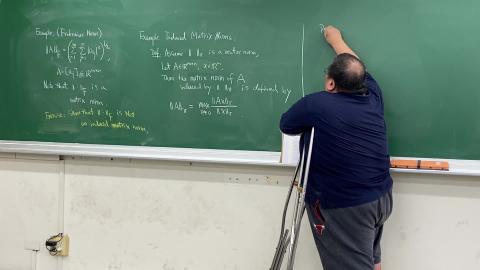 Example, (Frobenius Norm)
‖A‖_F = (Σ Σ |a_ij|²)^{1/2},
A = [a_ij] ∈ ℝ^{m×n}
Note that ‖·‖_F is a
matrix norm
Exercise: Show that ‖·‖_F is Not
an induced matrix norm.
Example Induced Matrix Norms.
Def. Assume ‖·‖ is a vector norm,
Let A ∈ ℝ^{m×n}, x ∈ ℝ^n,
Then the matrix norm of A,
induced by ‖·‖ is defined by
‖A‖ = max_{x≠0} ‖Ax‖/‖x‖